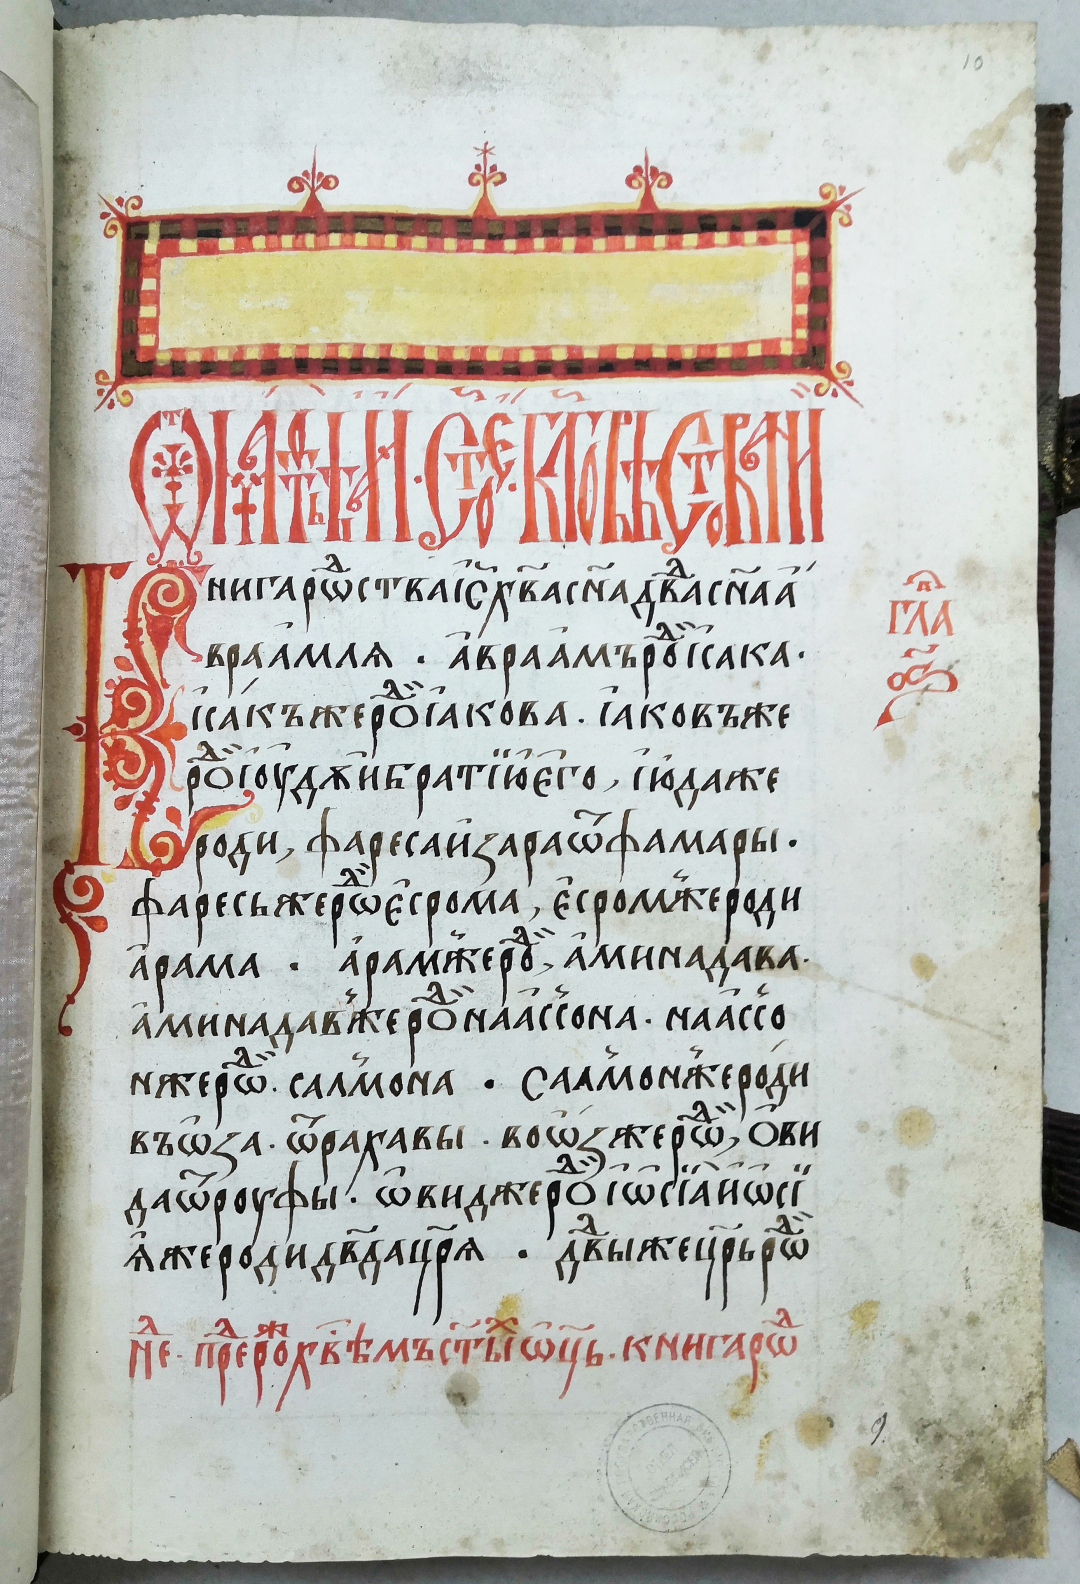 10
Ѿ маⷴѳеꙗ ст҃ое блговѣствованїе
Книгарѡⷣстваі҆с҃х҃васнад҃ваⷣснаа҆
враа́млѧ · а҆враа́мъроⷣі҆сака ·
і҆са́къжероⷣі҆а́кова · і҆а́ковъже
роⷣі҆оуджи҆братїю҆є҆го , і҆ю҆даже
роди , фаресаи҆зараѿфамары ·
фаресьжерѡⷣє҆срома , є҆сромжероди
а҆рама · а҆рамжероⷣ , а҆минадава ·
а҆минадавжероⷣнаа҆ссона · наа҆ссо
нжерѡⷣ · салмона · Саамонжероди
въѡ҆за · ѿрахавы · воѡ҆зжерѡⷣ , Ѻ҆ви
даѿроуфы · ѡ҆виджероⷣі҆ѡ҆сїаи҆ѡ҆сї
ꙗжеродид҃вдацр҃ѧ · д҃вⷣыжецр҃ьрѡⷣ
а҃
гла
ѡс
нⷣе · преⷣроⷤх҃вѣмъст҃ыⷯѡ҆ц҃ь · книгарѡⷣ
9